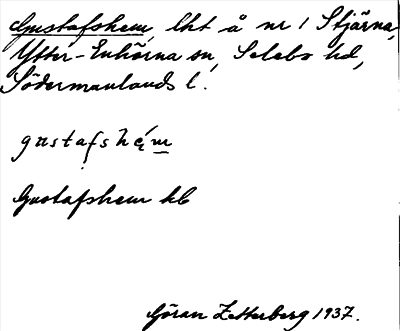 Gustafshem, lht å nr 1 Stjärna,
Ytter-Enhörna sn, Selebo hd,
Södermanlands l.
gustafshem
Gustafshem hb
Göran Zetterberg 1937.